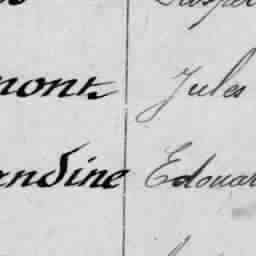 mont Jules
andine Edouar